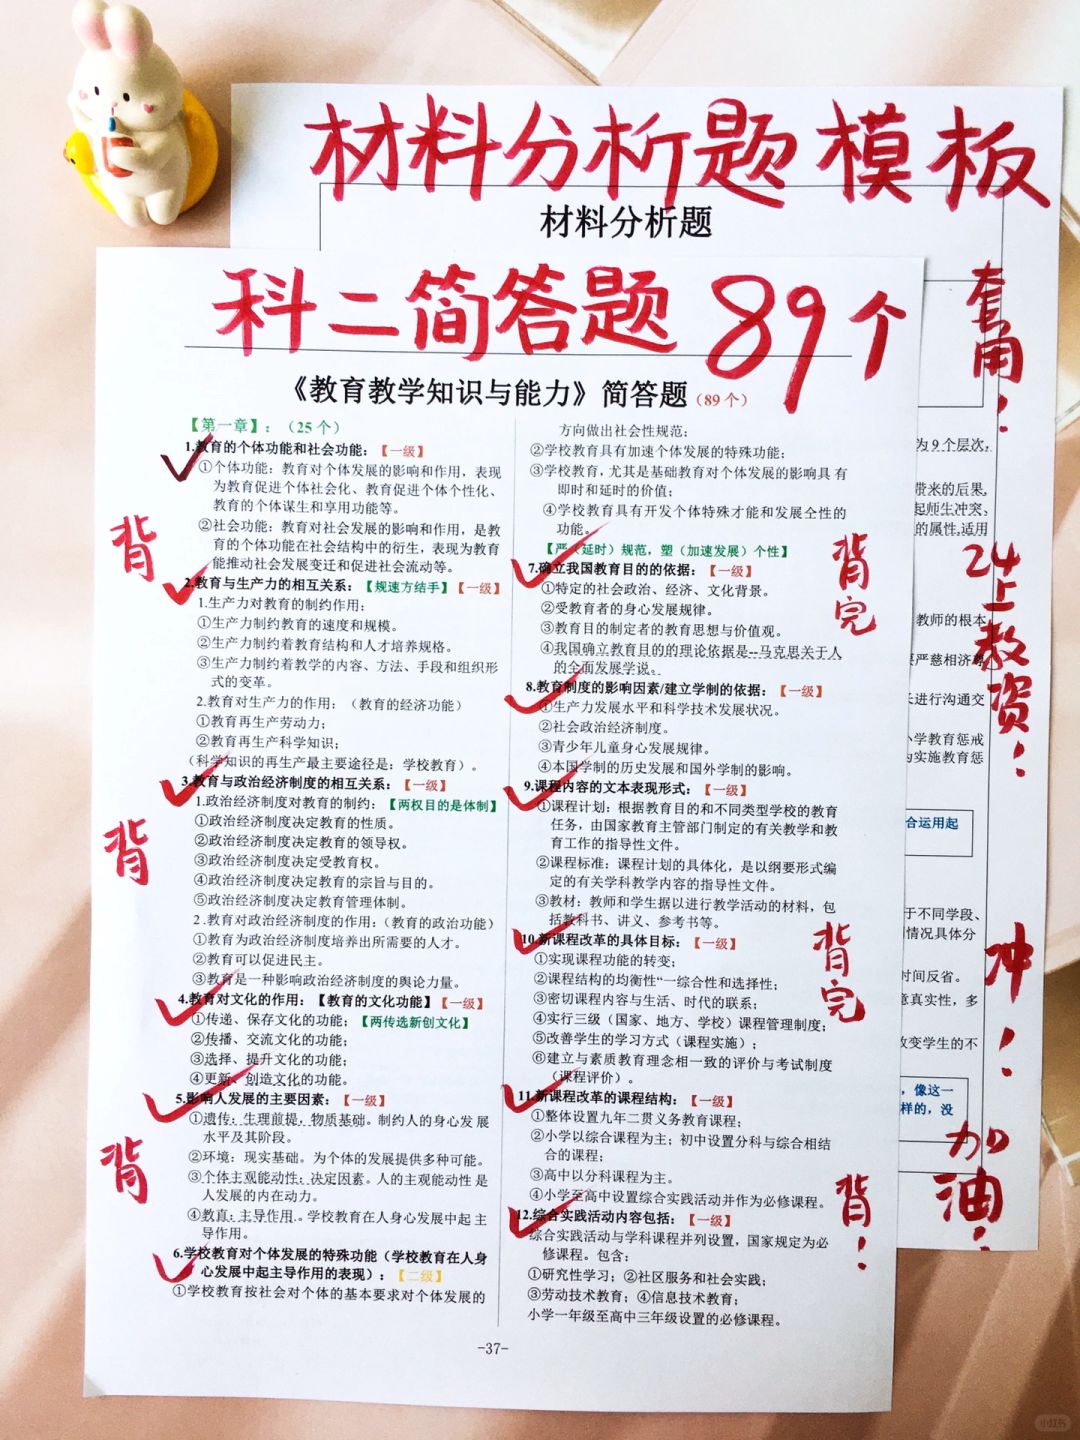 材料分析题模板
材料分析题
科二简答题 89个
《教育教学知识与能力》简答题（89个）
【第一章】：（25个）
1.教育的个体功能和社会功能：【一级】
①个体功能：教育对个体发展的影响和作用，表现
为教育促进个体社会化、教育促进个体个性化、
教育的个体谋生和享用功能等。
②社会功能：教育对社会发展的影响和作用，是教
育的个体功能在社会结构中的衍生，表现为教育
能推动社会发展变迁和促进社会流动等。
2.教育与生产力的相互关系：【规速方结手】【一级】
1.生产力对教育的制约作用：
①生产力制约教育的速度和规模。
②生产力制约着教育结构和人才培养规格。
③生产力制约着教学的内容、方法、手段和组织形
式的变革。
2.教育对生产力的作用：（教育的经济功能）
①教育再生产劳动力；
②教育再生产科学知识；
（科学知识的再生产最主要途径是：学校教育）。
3.教育与政治经济制度的相互关系：【一级】
1.政治经济制度对教育的制约：【两权目的是体制】
①政治经济制度决定教育的性质。
②政治经济制度决定教育的领导权。
③政治经济制度决定受教育权。
④政治经济制度决定教育的宗旨与目的。
⑤政治经济制度决定教育管理体制。
2.教育对政治经济制度的作用：（教育的政治功能）
①教育为政治经济制度培养出所需要的人才。
②教育可以促进民主。
③教育是一种影响政治经济制度的舆论力量。
4.教育对文化的作用：【教育的文化功能】【一级】
①传递、保存文化的功能；【两传选新创文化】
②传播、交流文化的功能；
③选择、提升文化的功能；
④更新、创造文化的功能。
5.影响人发展的主要因素：【一级】
①遗传：生理前提，物质基础。制约人的身心发展
水平及其阶段。
②环境：现实基础。为个体的发展提供多种可能。
③个体主观能动性：决定因素。人的主观能动性是
人发展的内在动力。
④教育：主导作用。学校教育在人身心发展中起主
导作用。
6.学校教育对个体发展的特殊功能（学校教育在人身
心发展中起主导作用的表现）：【二级】
①学校教育按社会对个体的基本要求对个体发展的
方向做出社会性规范；
②学校教育具有加速个体发展的特殊功能；
③学校教育，尤其是基础教育对个体发展的影响具有
即时和延时的价值；
④学校教育具有开发个体特殊才能和发展个性的
功能。
【严（延时）规范，塑（加速发展）个性】
7.确立我国教育目的的依据：【一级】
①特定的社会政治、经济、文化背景。
②受教育者的身心发展规律。
③教育目的制定者的教育思想与价值观。
④我国确立教育目的的理论依据是--马克思关于人
的全面发展学说。
8.教育制度的影响因素/建立学制的依据：【一级】
①生产力发展水平和科学技术发展状况。
②社会政治经济制度。
③青少年儿童身心发展规律。
④本国学制的历史发展和国外学制的影响。
9.课程内容的文本表现形式：【一级】
①课程计划：根据教育目的和不同类型学校的教育
任务，由国家教育主管部门制定的有关教学和教
育工作的指导性文件。
②课程标准：课程计划的具体化，是以纲要形式编
定的有关学科教学内容的指导性文件。
③教材：教师和学生据以进行教学活动的材料，包
括教科书、讲义、参考书等。
10.新课程改革的具体目标：【一级】
①实现课程功能的转变；
②课程结构的均衡性“一综合性和选择性；
③密切课程内容与生活、时代的联系；
④实行三级（国家、地方、学校）课程管理制度；
⑤改善学生的学习方式（课程实施）；
⑥建立与素质教育理念相一致的评价与考试制度
（课程评价）。
11.新课程改革的课程结构：【一级】
①整体设置九年二贯义务教育课程；
②小学以综合课程为主；初中设置分科与综合相结
合的课程；
③高中以分科课程为主。
④小学至高中设置综合实践活动并作为必修课程。
12.综合实践活动内容包括：【一级】
综合实践活动与学科课程并列设置，国家规定为必
修课程。包含：
①研究性学习；②社区服务和社会实践；
③劳动技术教育；④信息技术教育；
小学一年级至高中三年级设置的必修课程。
-37-
背
背
背
背完
背完
背！
套用！
24上教资！
冲！
加油！
为9个层次，
带来的后果，
起师生冲突、
的属性，适用
教师的根本
要严慈相济尊
长进行沟通交
小学教育惩戒
为实施教育惩
合运用起
于不同学段、
情况具体分
时间反省。
意真实性，多
改变学生的不
，像这一
样的，没
小红书